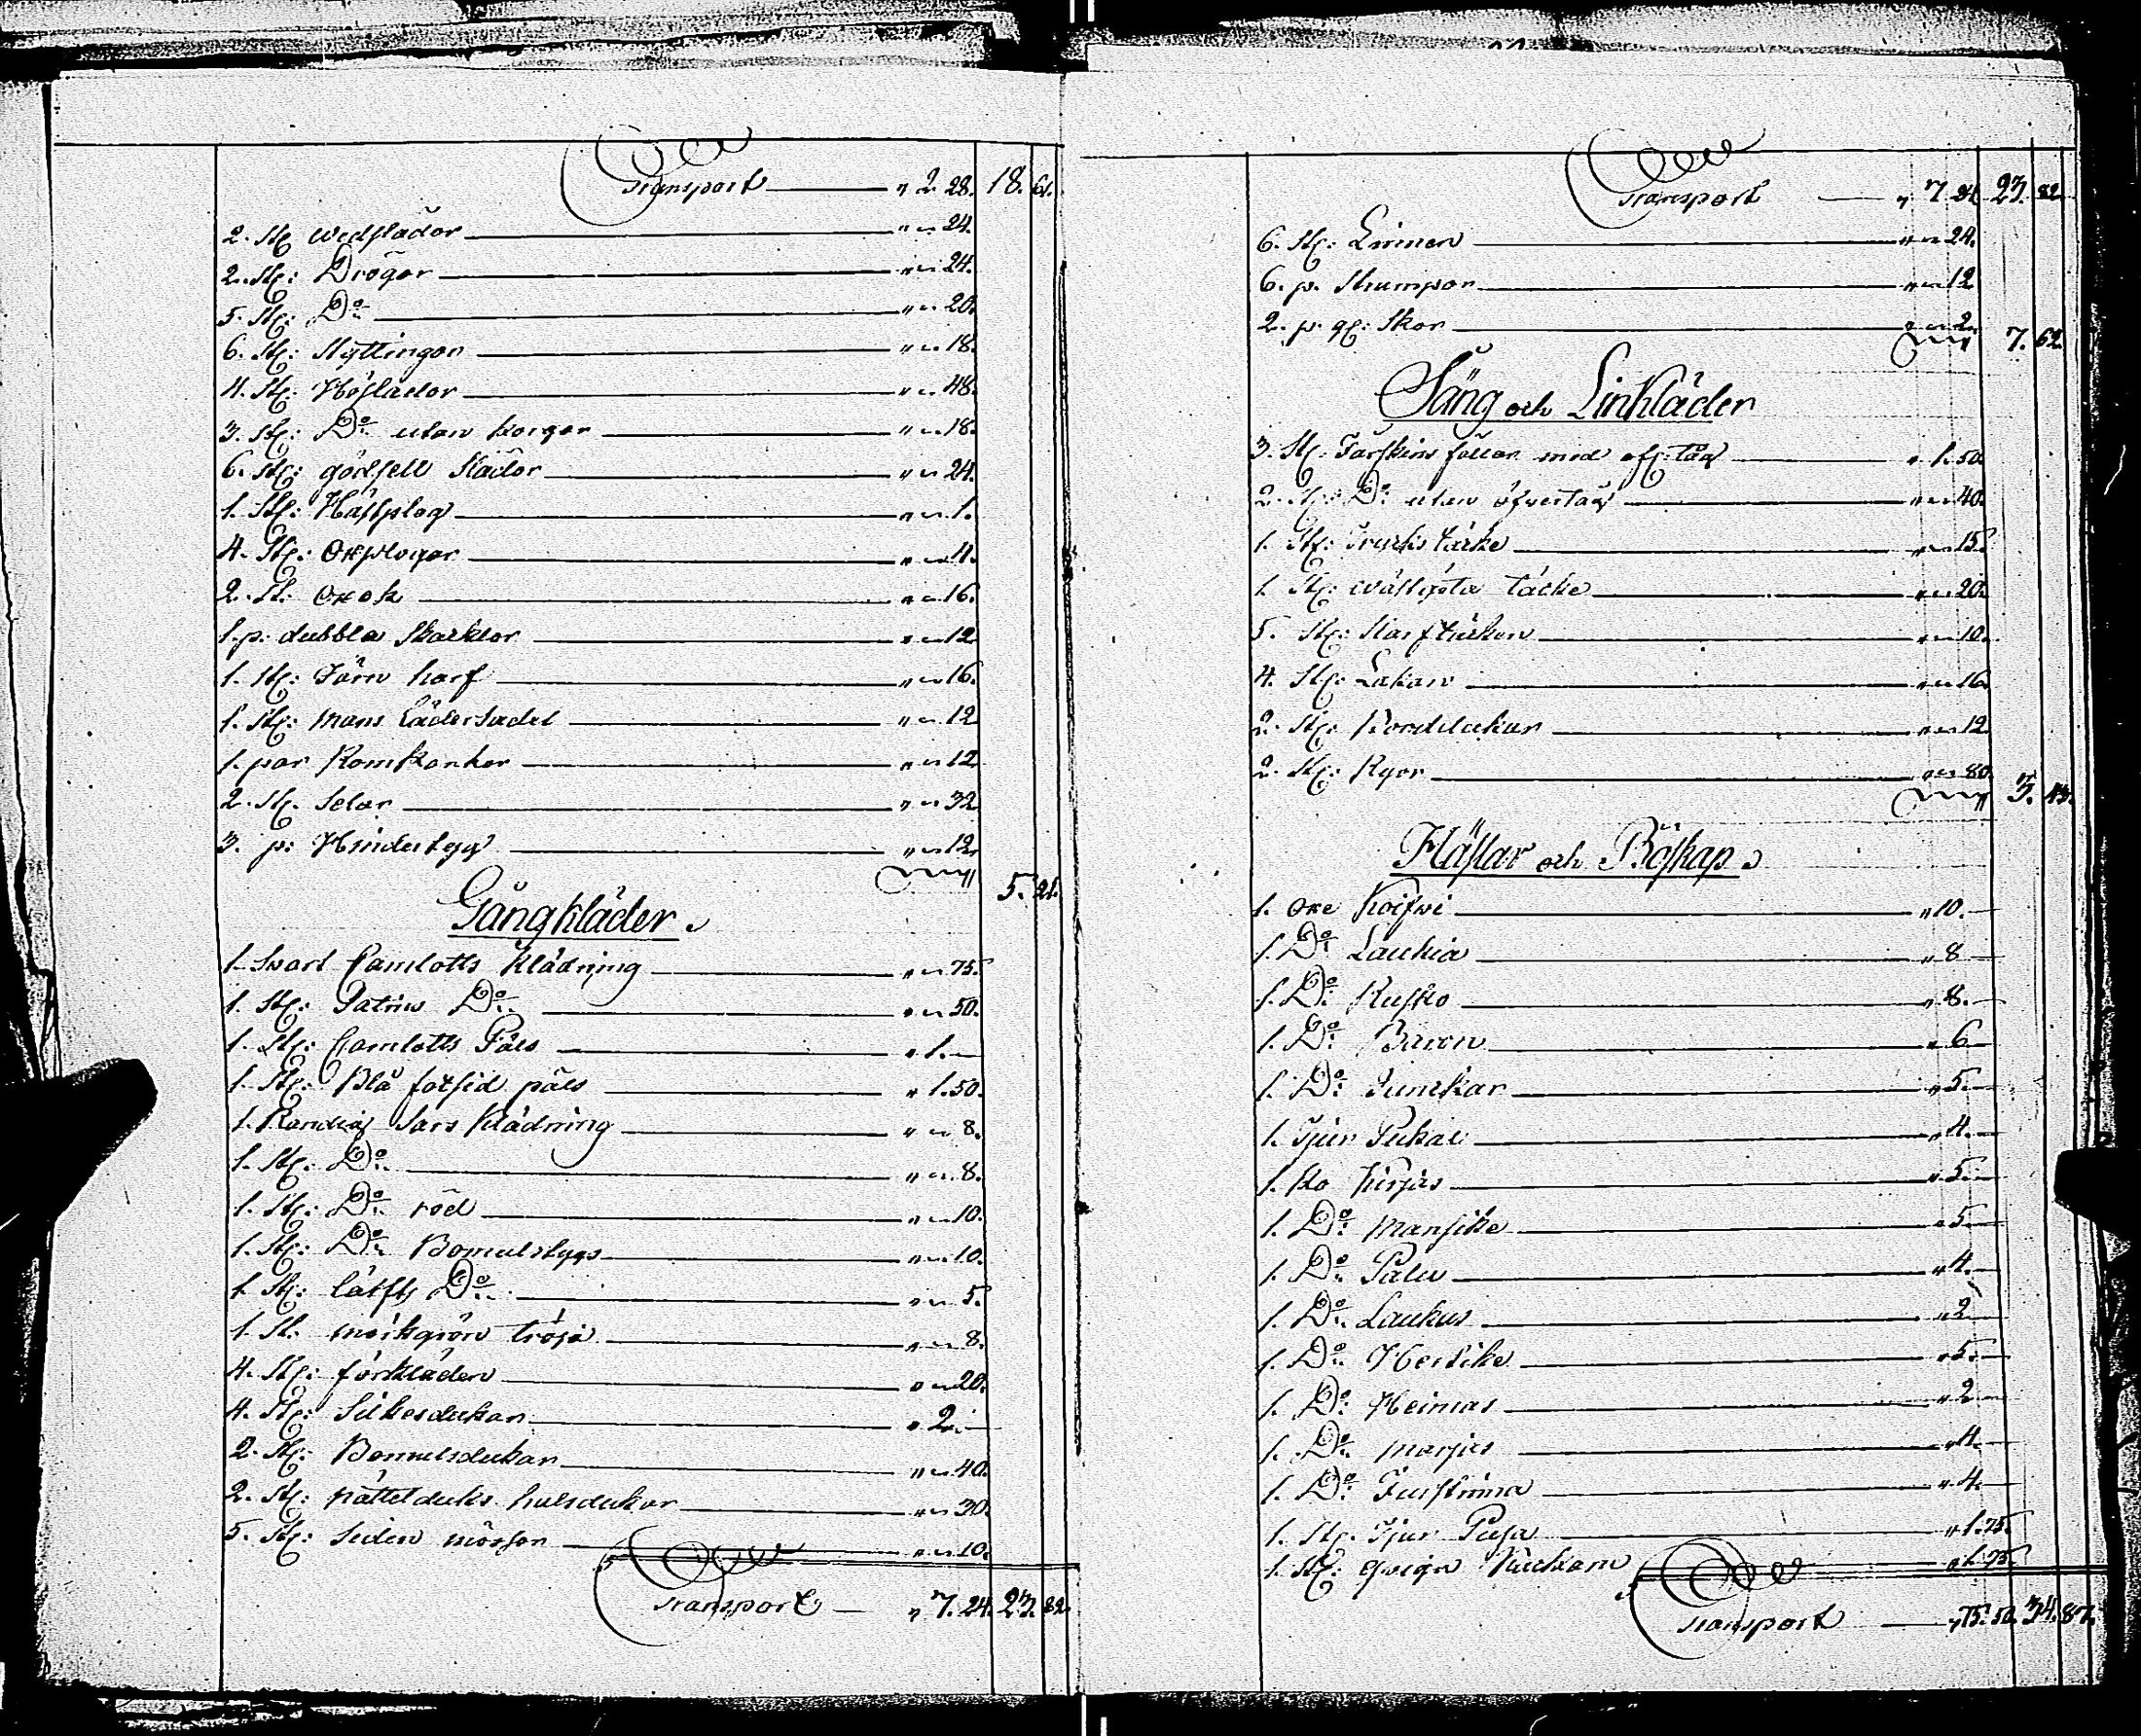 Transport — " 2 28. 18. 61.
2. St: wedslädor — " " 24.
2. St: Drögar — " " 24.
5. St: Do — " " 20.
6. St: Stÿttingar — " " 18.
4. St: Höslädor — " " 48.
3. St: Do utan korgar — " " 18.
6. St: gödsell Slädor — " " 24.
1. St: Hästplog — " " 1.
4. St: Oxplogar — " " 4.
2. St: oxok — " " 16.
1. p: dubbla Skacklor — " " 12
1. St: Järn harf — " " 16.
1. St: mans Lädersadel — " " 12
1. par — " " 12
2. St. Selar — " " 32
3. p: Hindertyg — " " 12.
5. 21.
Gångkläder.
1. Svart Camlotts Klädning — " " 75.
1. St: Satins Do — " " 50.
1. St: Camlotts Päls — " 1. —
1. St: Blå fotsid päls — " 1. 50.
1. Randig Sars Klädning — " " 8.
1. St: Do — " " 8.
1. St: Do röd — " " 10.
1. St: Do Bomulstygs — " " 10.
1. St: Do — " " 5.
1. St. mörkgrön tröja — " " 8.
4. St: förkläden — " " 20.
4. St: Silkesdukar — " 2. —
2. St: Bomulsdukar — " " 40.
2. St: nättelduks halsdukar — " " 30.
5. St: Siden mössor — " " 10.
Transport — " 7. 24. 23. 82.
Transport — " 7 24 23. 82
6. St: Linnen — " " 24.
6. p. Strumpor — " " 12
2. p. gl: Skor — " " 2.
7. 62.
Säng och Linkläder
3. St: Fårskins fällar med öf:tåg — " 1. 50.
2. St: Do utan öfvertåg — " " 40.
1. St: Trycks täcke — " " 15.
1. St: täcke — " " 20.
5. St: — " " 10.
4. St: Lakan — " " 16
2. St: Bordsdukar — " " 12
2. St: Ryor — " " 80.
3. 43.
Hästar och Boskap.
1. Oxe Koifwi — " 10. —
1. Do Laukia — " 8 —
1. Do Rusko — " 8. —
1. Do Baron — " 6 —
1. Do Junckar — " 5. —
1. Tjur — " 4. —
1. Ko Kirjas — " 5. —
1. Do Mansike — " 5 —
1. Do — " 4. —
1. Do Laukus — " 2 —
1. Do Hertike — " 5. —
1. Do Heimas — " 2 —
1. Do Marjus — " 4. —
1. Do Furstinna — " 4. —
1. St. Tjur — " 1. 75.
1. St: qviga — " 1. 75.
Transport — " 75. 50. 34. 87.